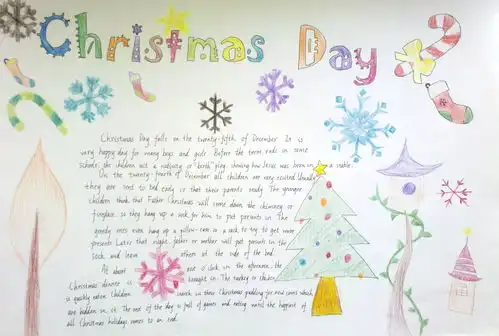 Christmas Day
Christmas Day falls on the twenty-fifth of December. It is
very happy day for many boys and girls. Before the term ends in some
schools, the children act a nativity or "birth" play showing how Jesus was born in a stable.
On the twenty-fourth of December all children are very excited. Usually
they are sent to bed early so that their parents ready. The younger
children think that Father Christmas will come down the chimney or
fireplace, so they hang up a sock for him to put presents in. The
greedy ones even hang up a pillow-case or a sack to try to get more
presents. Later that night, father or mother will put presents in the
sock, and leave others at the side of the bed.
At about one o'clock in the afternoon, the
Christmas dinner is brought in. The turkey or chicken
is quickly eaten. Children search in their Christmas pudding for new coins which
are hidden in it. The rest of the day is full of games and eating until the happiest of
all Christmas holidays comes to an end.